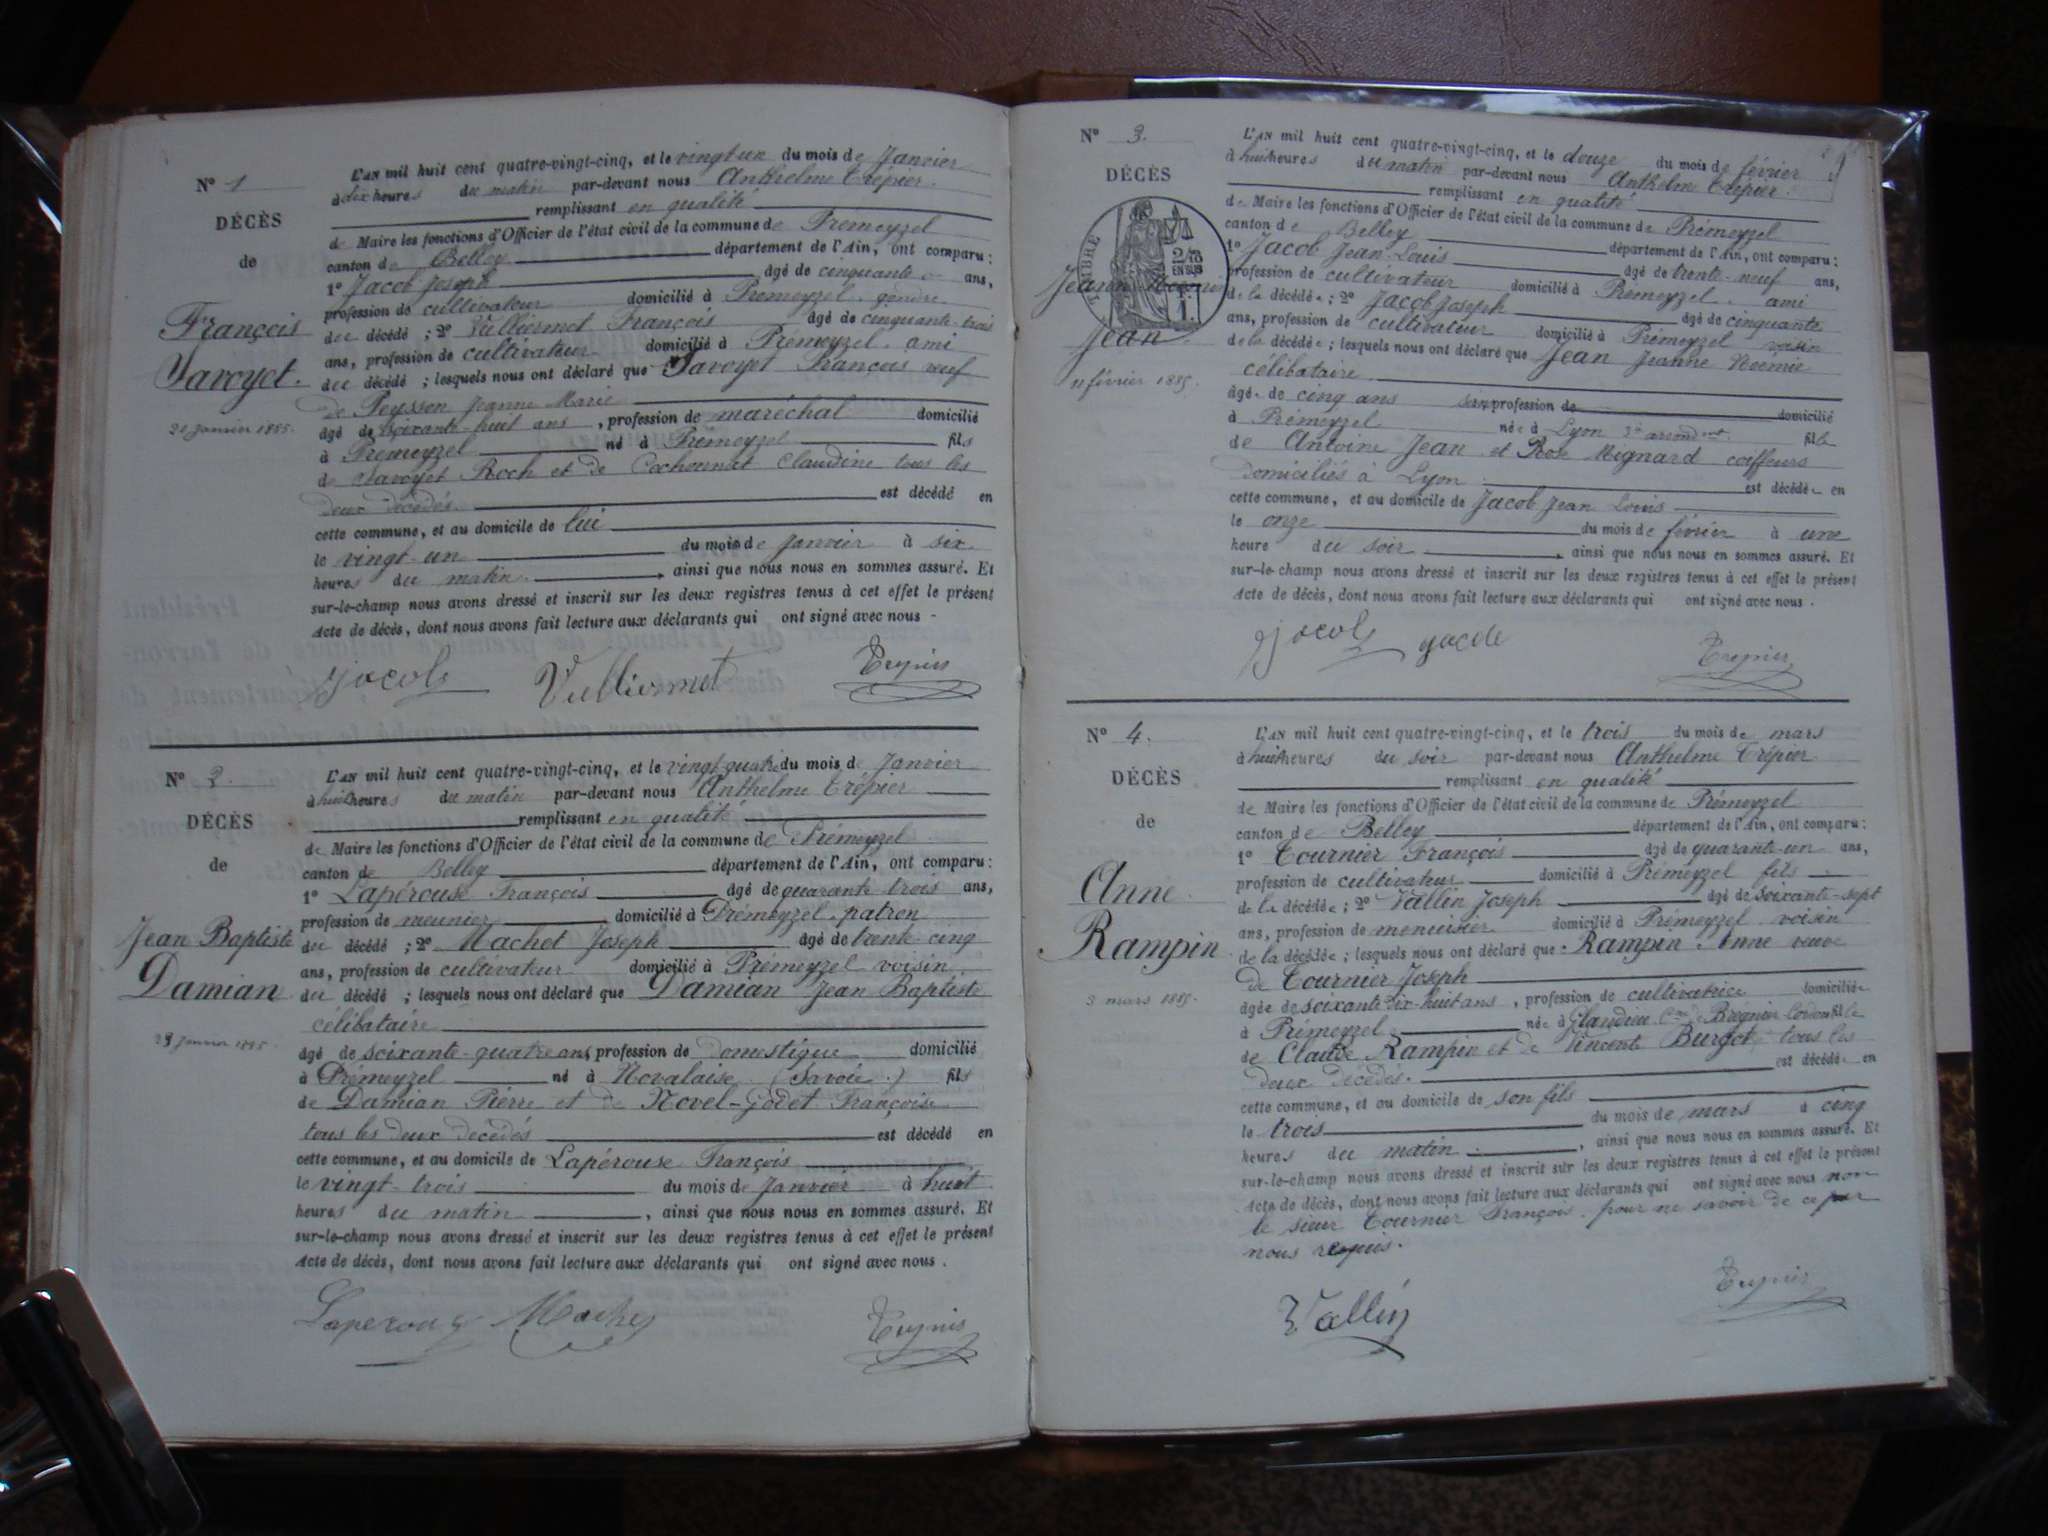 N° 1
DÉCÈS
de
François
Savoyet.
21 Janvier 1885.
L'AN mil huit cent quatre-vingt-cinq, et le vingt un du mois de Janvier
à dix heures du matin par-devant nous Anthelme Trépier.
remplissant en qualité
de Maire les fonctions d'Officier de l'état civil de la commune de Premeyzel
canton de Belley département de l'Ain, ont comparu :
1° Jacob Joseph âgé de cinquante ans,
profession de cultivateur domicilié à Premeyzel gendre
du décédé ; 2° Vulliermet François âgé de cinquante-trois
ans, profession de cultivateur domicilié à Prémeyzel ami
du décédé ; lesquels nous ont déclaré que Savoyet François veuf
de Peysson Jeanne Marie
âgé de soixante-huit ans, profession de maréchal domicilié
à Prémeyzel né à Prémeyzel fils
de Savoyet Roch et de Cochonnat Claudine tous les
deux décédés. est décédé en
cette commune, et au domicile de lui
le vingt-un du mois de Janvier à six
heures du matin. ainsi que nous nous en sommes assuré. Et
sur-le-champ nous avons dressé et inscrit sur les deux registres tenus à cet effet le présent
Acte de décès, dont nous avons fait lecture aux déclarants qui ont signé avec nous -
Jacob Vulliermet Trépier
N° 2.
DÉCÈS
de
Jean Baptiste
Damian
23 Janvier 1885.
L'AN mil huit cent quatre-vingt-cinq, et le vingt-quatre du mois de Janvier
à huit heures du matin par-devant nous Anthelme Trépier
remplissant en qualité
de Maire les fonctions d'Officier de l'état civil de la commune de Prémeyzel
canton de Belley département de l'Ain, ont comparu :
1° Lapérouse François âgé de quarante trois ans,
profession de meunier domicilié à Prémeyzel patron
du décédé ; 2° Machet Joseph âgé de trente-cinq
ans, profession de cultivateur domicilié à Prémeyzel voisin
du décédé ; lesquels nous ont déclaré que Damian Jean Baptiste
célibataire
âgé de soixante-quatre ans, profession de domestique domicilié
à Prémeyzel né à Novalaise (Savoie.) fils
de Damian Pierre et de Novel-Godet Françoise
tous les deux décédés est décédé en
cette commune, et au domicile de Lapérouse François
le vingt-trois du mois de Janvier à huit
heures du matin, ainsi que nous nous en sommes assuré. Et
sur-le-champ nous avons dressé et inscrit sur les deux registres tenus à cet effet le présent
Acte de décès, dont nous avons fait lecture aux déclarants qui ont signé avec nous.
Laperouse Machet Trépier
N° 3.
DÉCÈS
TIMBRE
2/10
EN SUS
Jeanne Noémie
Jean
11 février 1885.
L'AN mil huit cent quatre-vingt-cinq, et le douze du mois de février
à huit heures du matin par-devant nous Anthelme Trépier.
remplissant en qualité
de Maire les fonctions d'Officier de l'état civil de la commune de Prémeyzel
canton de Belley département de l'Ain, ont comparu :
1° Jacob Jean-Louis âgé de trente-neuf ans,
profession de cultivateur domicilié à Prémeyzel ami
de la décédée ; 2° Jacob Joseph âgé de cinquante
ans, profession de cultivateur domicilié à Prémeyzel voisin
de la décédée ; lesquels nous ont déclaré que Jean Jeanne Noémie
célibataire
âgée de cinq ans sans profession de domicilié
à Prémeyzel née à Lyon 3e arrondmt fille
de Antoine Jean et Rose Mignard coiffeurs
domiciliés à Lyon est décédée en
cette commune, et au domicile de Jacob Jean Louis
le onze du mois de février à une
heure du soir, ainsi que nous nous en sommes assuré. Et
sur-le-champ nous avons dressé et inscrit sur les deux registres tenus à cet effet le présent
Acte de décès, dont nous avons fait lecture aux déclarants qui ont signé avec nous.
Jacob Jacob Trépier
N° 4.
DÉCÈS
de
Anne
Rampin
3 mars 1885.
L'AN mil huit cent quatre-vingt-cinq, et le trois du mois de mars
à huit heures du soir par-devant nous Anthelme Trépier
remplissant en qualité
de Maire les fonctions d'Officier de l'état civil de la commune de Prémeyzel
canton de Belley département de l'Ain, ont comparu :
1° Tournier François âgé de quarante-un ans,
profession de cultivateur domicilié à Prémeyzel fils
de la décédée ; 2° Vallin Joseph âgé de soixante-sept
ans, profession de menuisier domicilié à Prémeyzel voisin
de la décédée ; lesquels nous ont déclaré que Rampin Anne veuve
de Tournier Joseph
âgée de soixante dix-huit ans, profession de cultivatrice domiciliée
à Prémeyzel née à Glandieu Cne de Bregnier Cordon fille
de Claude Rampin et de Vincente Burgot tous les
deux décédés. est décédée en
cette commune, et au domicile de son fils
le trois du mois de mars à cinq
heures du matin, ainsi que nous nous en sommes assuré. Et
sur-le-champ nous avons dressé et inscrit sur les deux registres tenus à cet effet le présent
Acte de décès, dont nous avons fait lecture aux déclarants qui ont signé avec nous non
le sieur Tournier François pour ne savoir de ce par
nous requis.
Vallin Trépier